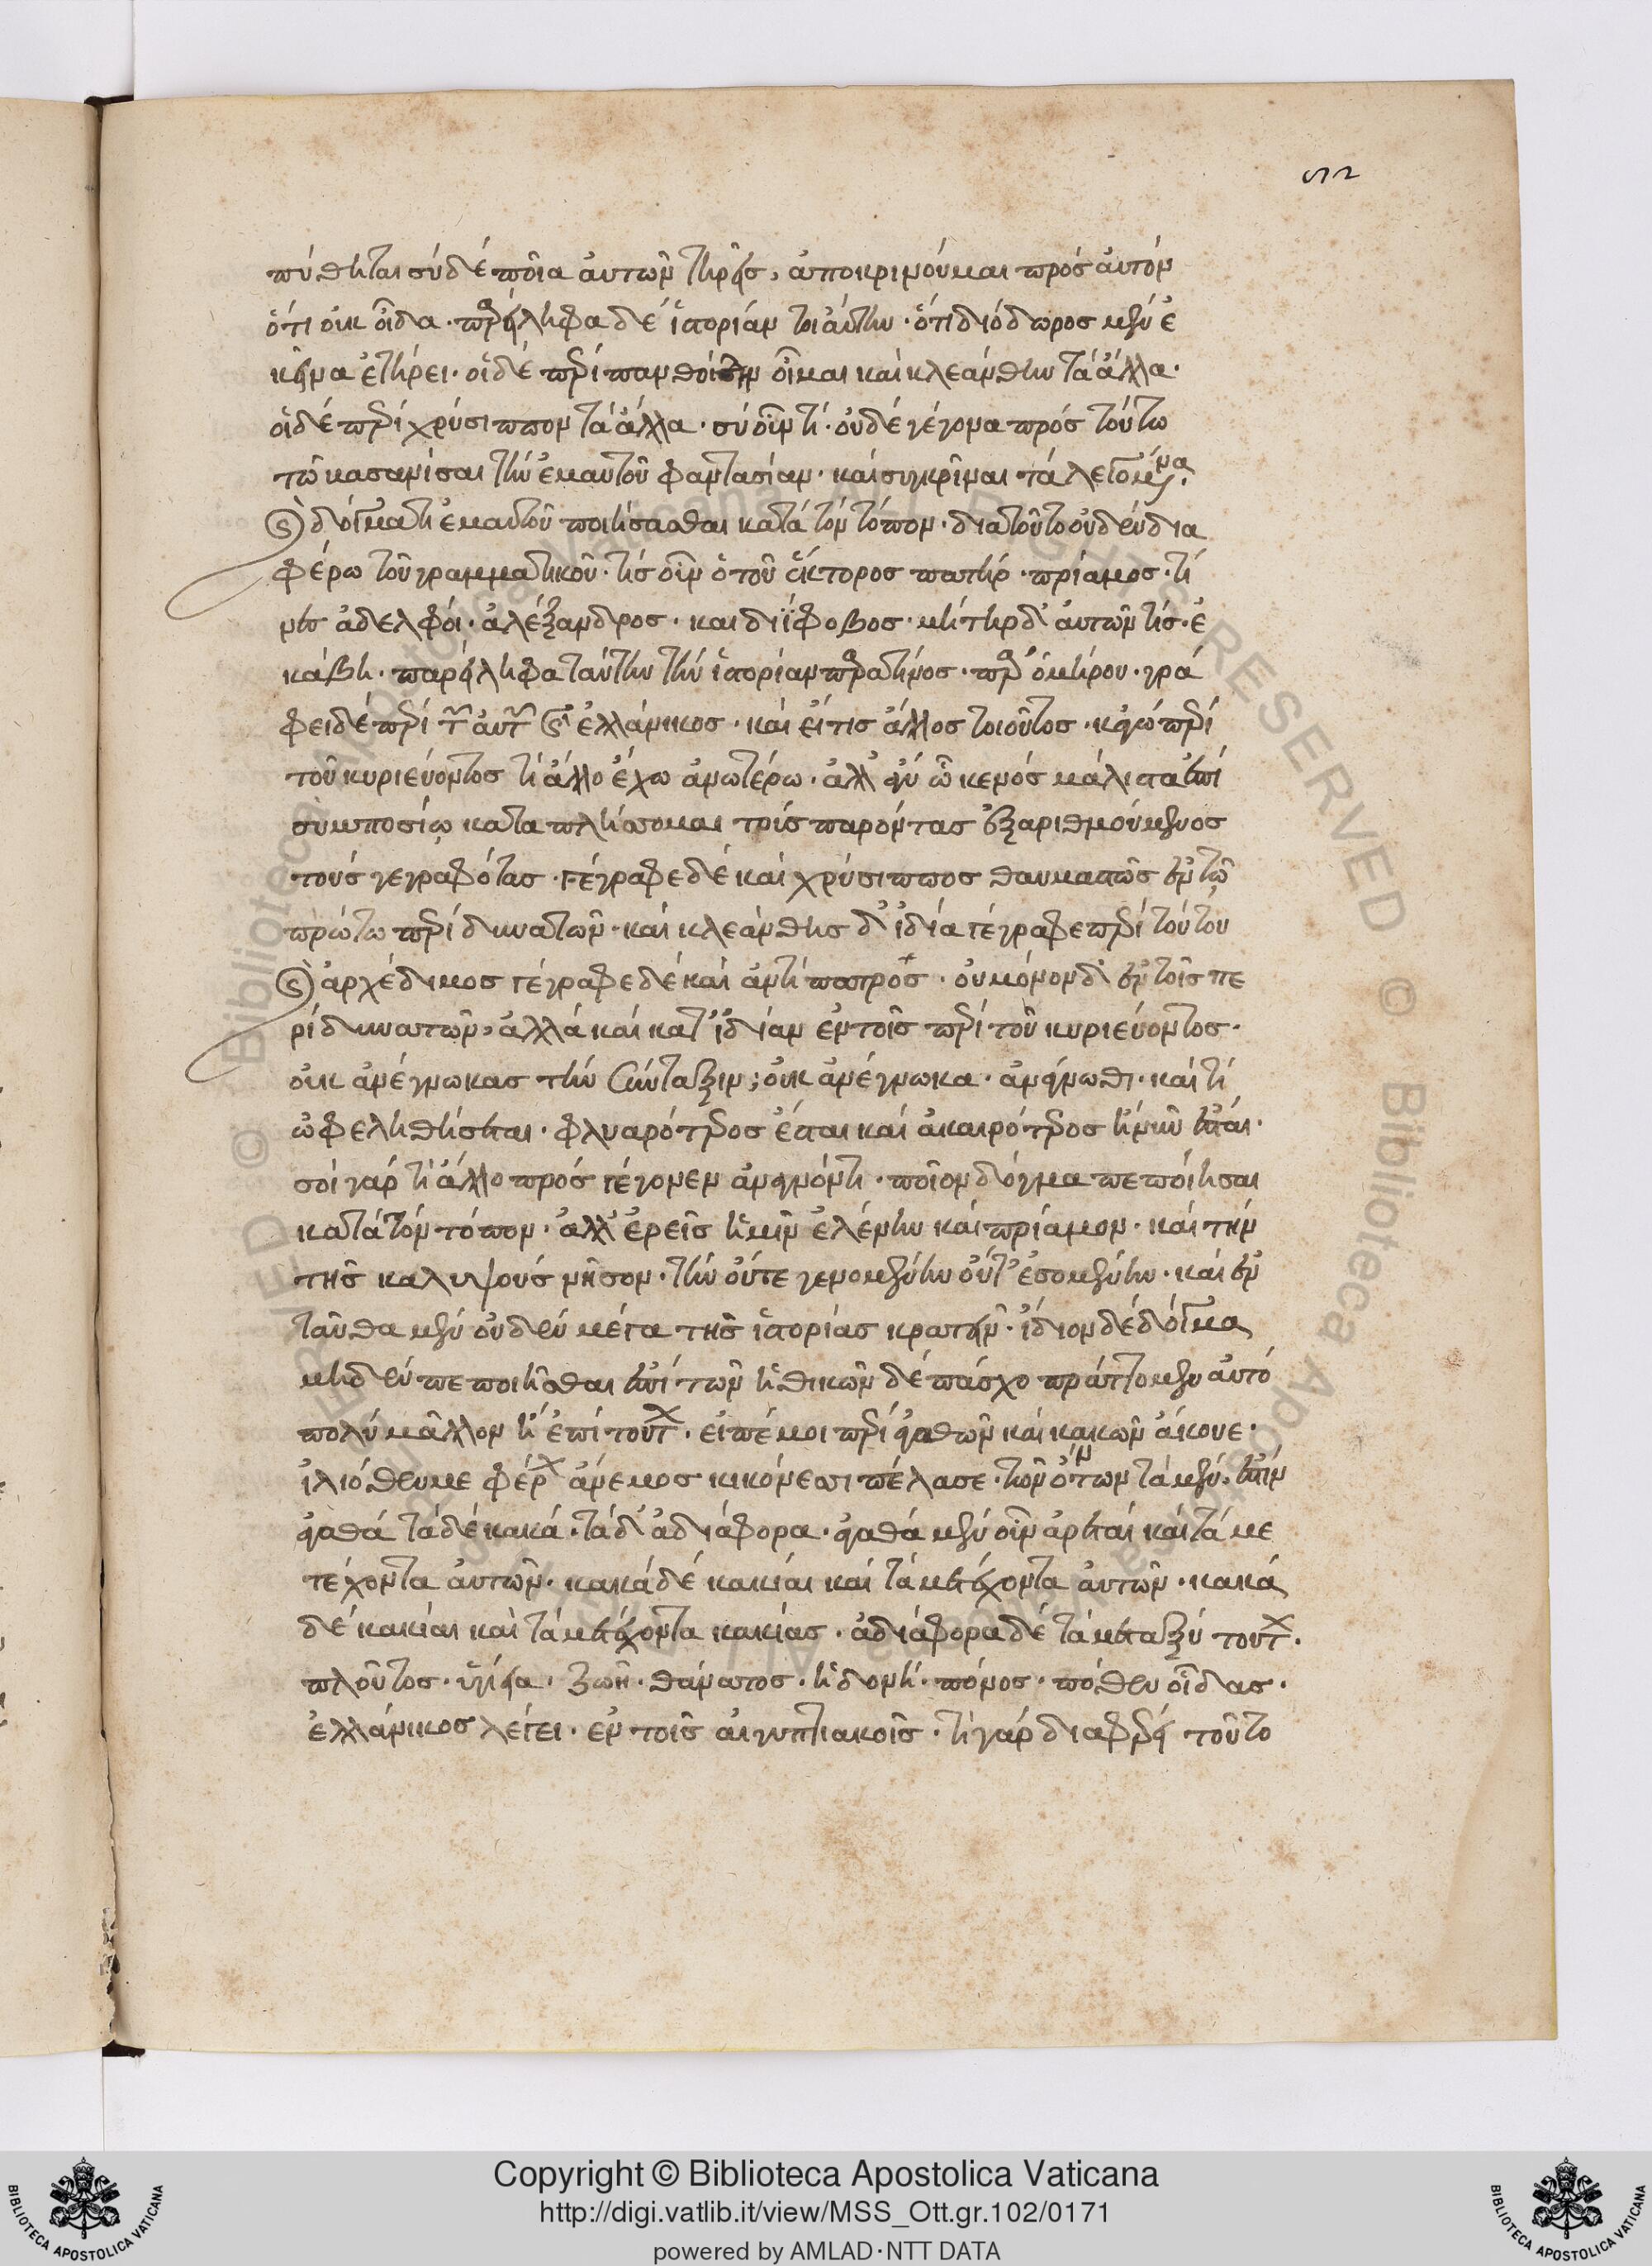 ϛπ
πύθηται σὺ δὲ ποῖα αὐτῶν τηρεῖς, ἀποκρινοῦμαι πρὸς αὐτὸν
ὅτι οὐκ οἶδα· παρείληφα δὲ ἱστορίαν τοιαύτην· ὅτι διόδωρος μὲν ἐ
κεῖνα ἐτήρει· οἱ δὲ περὶ πανθοίδην οἶμαι καὶ κλεάνθην τὰ ἄλλα·
οἱ δὲ περὶ χρύσιππον τὰ ἄλλα· σὺ οὖν τί· οὐδὲ γέγονα πρὸς τούτω
τῶ βασανίσαι τὴν ἐμαυτοῦ φαντασίαν· καὶ συγκρῖναι τὰ λεγόμενα·
καὶ δόγμα τι ἐμαυτοῦ ποιήσασθαι κατὰ τὸν τόπον· διατοῦτο οὐδὲν δια
φέρω τοῦ γραμματικοῦ· τίς οὖν ὁ τοῦ ἕκτορος πατήρ· πρίαμος· τί
νες ἀδελφοί· ἀλέξανδρος· καὶ δηίφοβος· μήτηρ δ' αὐτῶν τίς· ἐ
κάβη· παρείληφα ταύτην τὴν ἱστορίαν παρα τίνος· παρ' ὁμήρου· γρά
φει δὲ περὶ τῶν αὐτῶν καὶ ἑλλάνικος· καὶ εἴ τις ἄλλος τοιοῦτος· κἀγὼ περὶ
τοῦ κυριεύοντος τί ἄλλο ἔχω ἀνωτέρω· ἀλλ' ἂν ὦ κενὸς μάλιστα ἐπὶ
συμποσίῳ καταπλήσσομαι τοὺς παρόντας ἐξαριθμούμενος
τοὺς γεγραφότας· γέγραφε δὲ καὶ χρύσιππος θαυμαστῶς ἐν τῷ
πρώτω περὶ δυνατῶν· καὶ κλεάνθης δ' ἰδία γέγραφε περὶ τούτου
καὶ ἀρχέδημος γέγραφε δὲ καὶ ἀντίπατρος· οὐ μόνον δ' ἐν τοῖς πε
ρὶ δυνατῶν, ἀλλὰ καὶ κατ' ἰδίαν ἐν τοῖς περὶ τοῦ κυριεύοντος·
οὐκ ἀνέγνωκας τὴν σύνταξιν; οὐκ ἀνέγνωκα· ἀνάγνωθι· καὶ τί
ὠφεληθήσεται· φλυαρότερος ἔσται καὶ ἀκαιρότερος ἢ νῦν ἐστάι·
σοὶ γάρ τί ἄλλο προς γέγονεν ἀναγνόντι· ποῖον δόγμα πεποίησαι
κατὰ τὸν τόπον· ἀλλ' ἐρεῖς ἡμῖν ἑλένην καὶ πρίαμον· καὶ τὴν
τῆς καλυψοῦς νῆσον· τὴν οὔτε γενομένην οὔτ' ἐσομένην· καὶ ἐν
ταῦθα μὲν οὐδὲν μέγα τῆς ἱστορίας κρατεῖν· ἴδιον δὲ δόγμα
μηδὲν πεποιῆσθαι ἐπὶ τῶν ἠθικῶν δὲ πάσχο πράττομεν αὐτὸ
πολὺ μᾶλλον ἢ ἐπὶ τούτων· εἰπέ μοι περὶ ἀγαθῶν καὶ κακῶν ἄκουε·
ἰλιόθεν με φέρων ἄνεμος κικόνεσι πέλασε· τῶν ὄντων τὰ μὲν, ἐστὶν
ἀγαθὰ τὰ δὲ κακά· τὰ δ' ἀδιάφορα· ἀγαθὰ μὲν οὖν ἀρεταὶ καὶ τὰ με
τέχοντα αὐτῶν· κακὰ δὲ κακίαι καὶ τὰ μετέχοντα αὐτῶν· κακὰ
δὲ κακίαι καὶ τὰ μετέχοντα κακίας· ἀδιάφορα δὲ τὰ μεταξὺ τούτων·
πλοῦτος· ὑγίεια· ζωή· θάνατος· ἡδονή· πόνος· πόθεν οἶδας·
ἑλλάνικος λέγει· ἐν τοῖς αἰγυπτιακοῖς· τί γὰρ διαφέρει τοῦτο
Copyright © Biblioteca Apostolica Vaticana
http://digi.vatlib.it/view/MSS_Ott.gr.102/0171
powered by AMLAD·NTT DATA